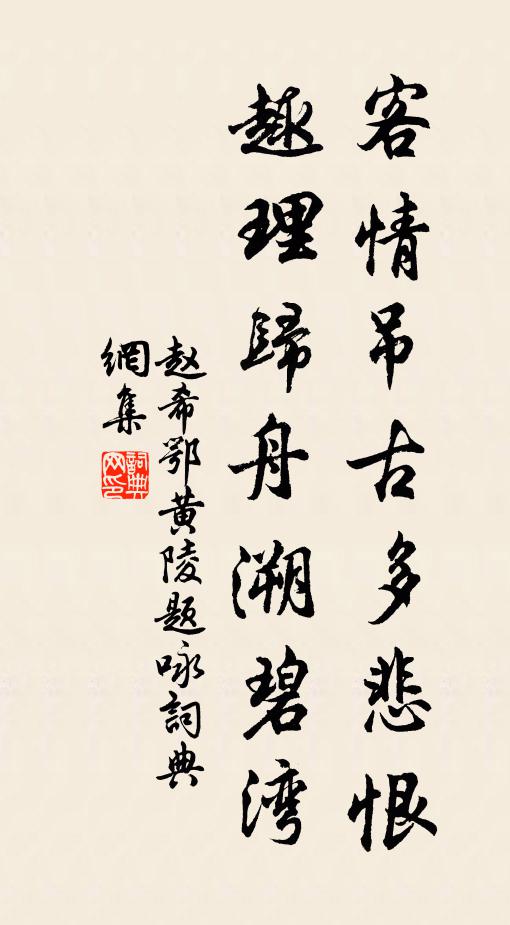 客情吊古多悲恨
趣理歸舟溯碧湾
赵希鄂黄陵题咏詞典
網集
詞典
网印